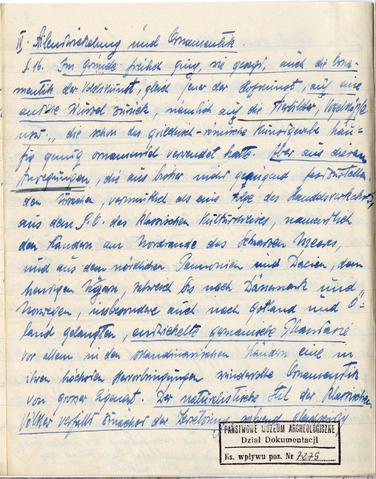 II. Stilentwickelung und Ornamentik.
S. 16. Im Grunde freilich ging, wie gesagt, auch die Orna-
mentik der Volkskunst, gleich jener der Hofkunst, auf eine
antike Wurzel zurück, nämlich auf die Tierbilder, Vogelköpfe
usw., die schon das griechisch-römische Kunstgewerbe häu-
fig genug ornamental verwendet hatte. Aber aus diesen
Anregungen, die aus bisher nicht genügend festzustellen-
den Gründen, vermutlich als eine Folge des Handelsverkehrs,
aus dem S.O. des klassischen Kulturkreises, namentlich
den Ländern am Nordrande des Schwarzen Meeres,
und aus dem nördlichen Pannonien und Dacien, dem
heutigen Ungarn, nordwärts bis nach Dänemark und
Norwegen, insbesondere auch nach Gotland und Ö-
land gelangten, entwickelte germanische Phantasie
vor allem in den skandinavischen Ländern eine in
ihren höchsten Hervorbringungen wundervolle Ornamentik
von grosser Eigenart. Der naturalistische Stil der klassischen
Völker verfällt zunächst der Zersetzung
PAŃSTWOWE MUZEUM ARCHEOLOGICZNE
Dział Dokumentacji
Ks. wpływu poz. Nr 7279